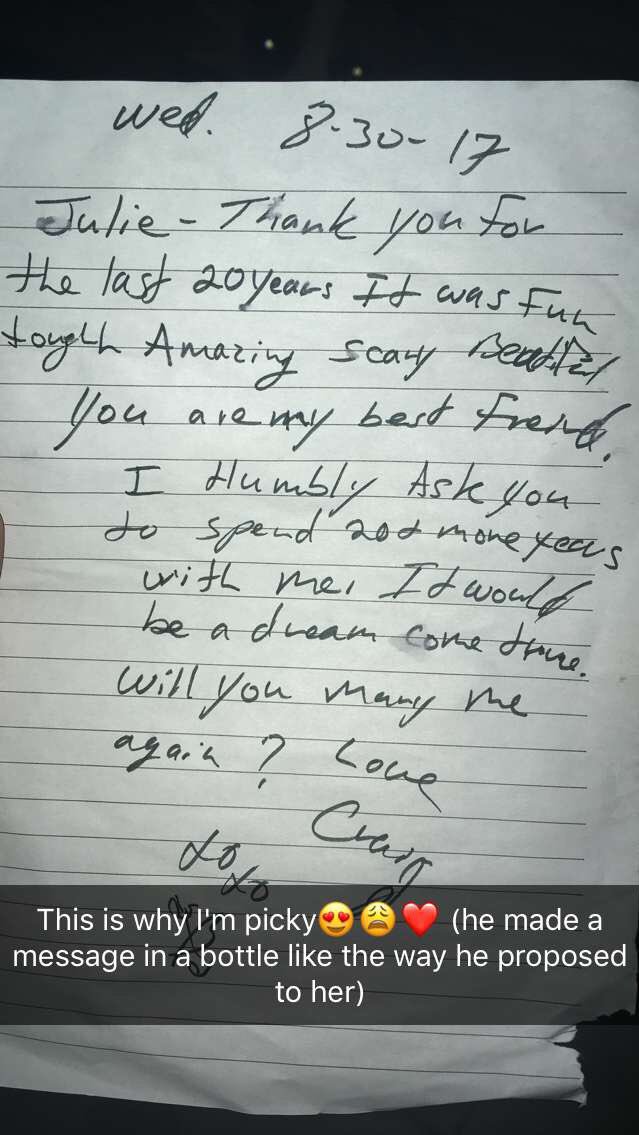 Wed. 8-30-17
Julie - Thank you for
the last 20 years It was Fun
tough Amazing scary Beautiful
You are my best freind.
I Humbly Ask you
to spend 20+ more years
with me, It would
be a dream come true.
Will you marry me
again? Love
Craig
xo
xo
This is why I'm picky😍😩❤️ (he made a
message in a bottle like the way he proposed
to her)